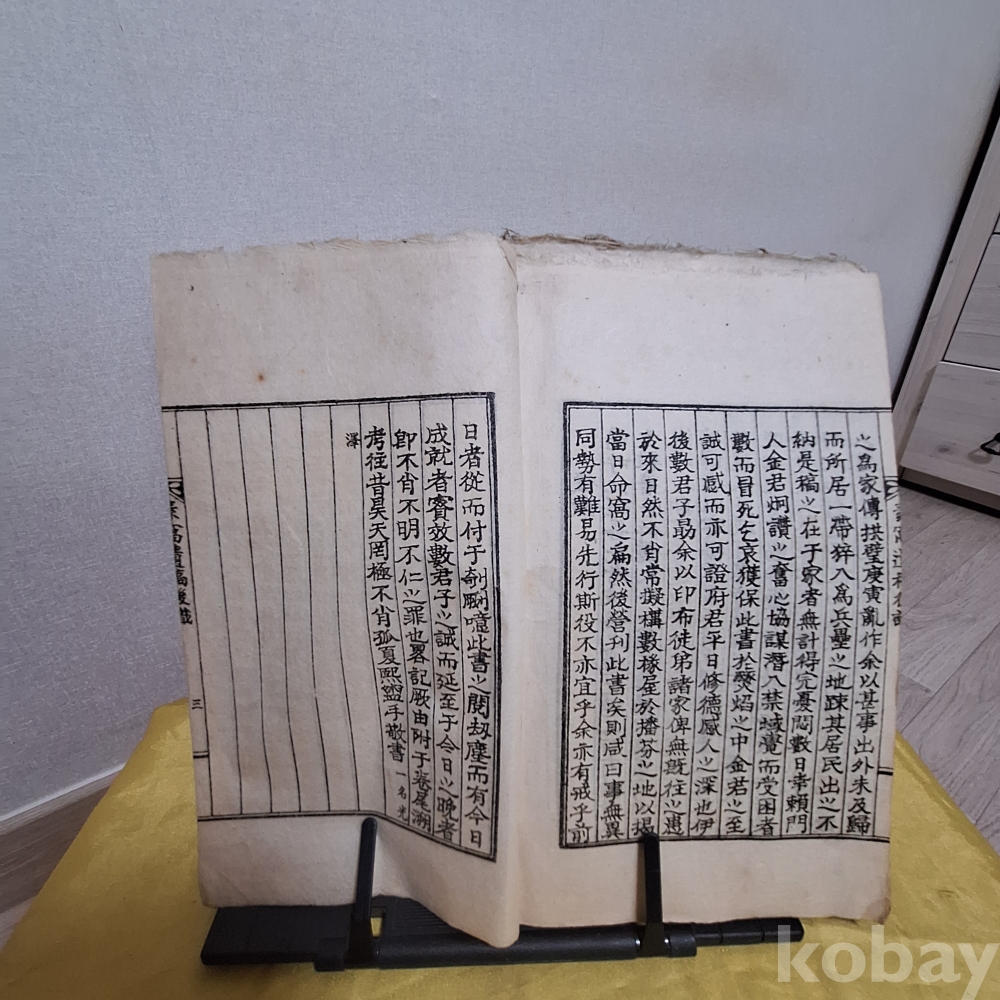 之爲家傳拱璧庚寅亂作余以甚事出外未及歸
而所居一帶猝入爲兵壘之地疎其居民出之不
納是稿之在于家者無計得完憂悶數日幸賴門
人金君炯讚之奮心協謀潛入禁域覺而受困者
數而冒死乞哀獲保此書於燹焰之中金君之至
誠可感而亦可證府君平日修德感人之深也伊
後數君子勗余以印布徒弟諸家俾無旣往之患
於來日然不肖常擬構數椽屋於播芬之地以揭
當日命窩之扁然後營刊此書矣則咸曰事無異
同勢有難易先行斯役不亦宜乎余亦有戒乎前
日者從而付于剞劂噫此書之閱刼塵而有今日
成就者賓效數君子之誠而延至于今日之晩者
卽不肖不明不仁之罪也畧記厥由附于卷尾溯
考往昔昊天罔極不肖孤夏熙盥手敬書 一名光
澤
窩遺稿後識
三
kobay